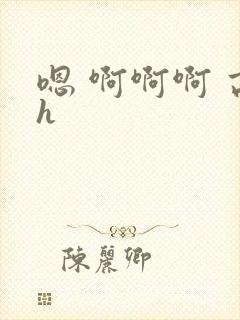 嗯 啊啊啊 古
h
陳麗卿